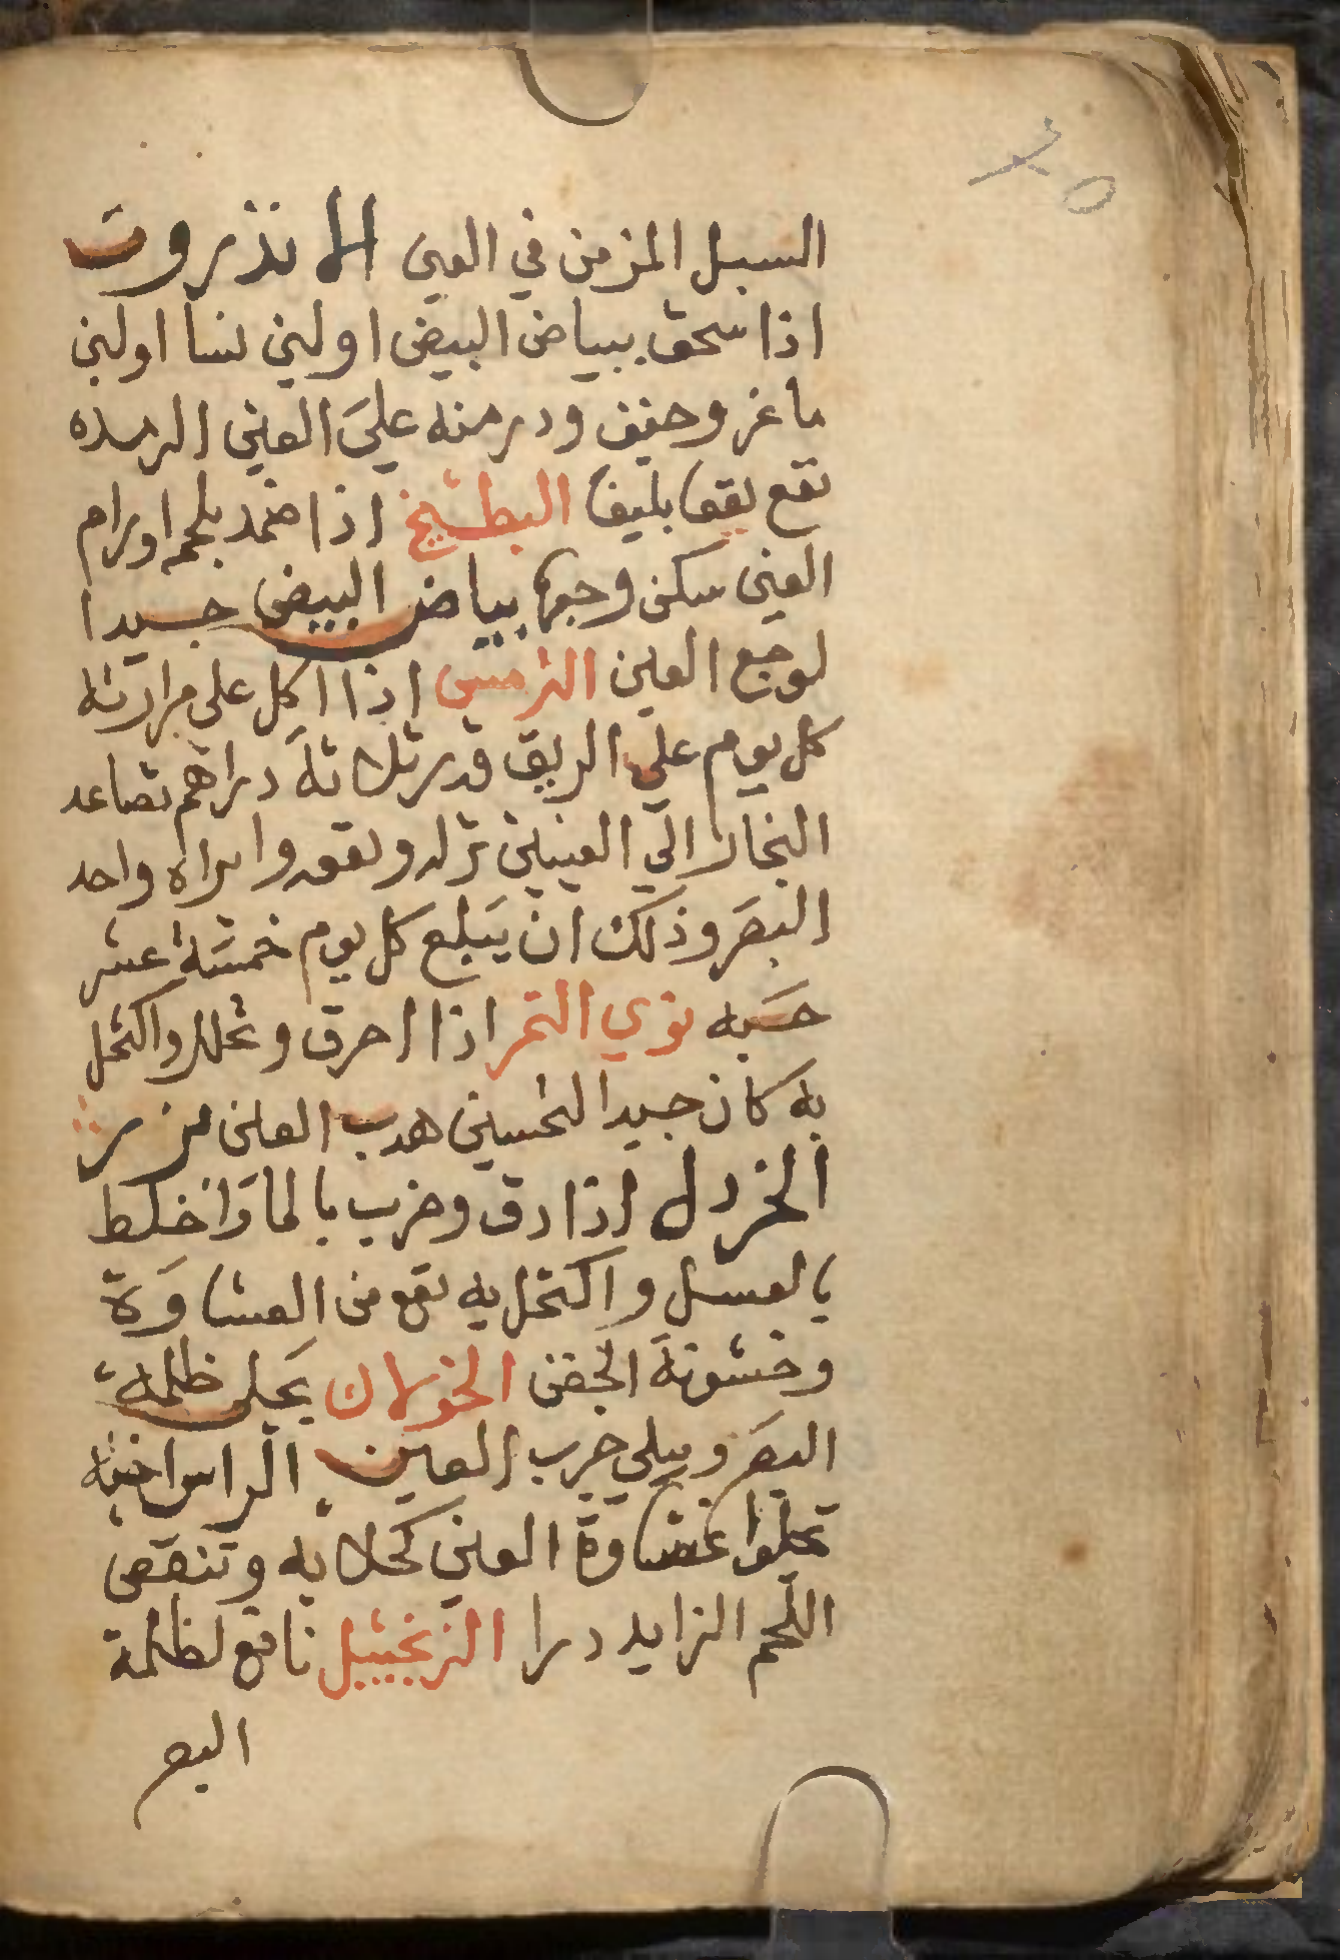 السبل المزمن في العين الانذروت
اذا سحق ببياض البيض اولبن نسا اولبن
ماعز وجفف ودر منه علي العين الرمده
نفع نفعا بليغا البطيخ اذا ضمد بلحمه اورام
العين سكن وجعها بياض البيض جيدا
لوجع العين الترمس اذا اكل على مرارته
كل يوم علي الريق قدر ثلاثة دراهم تصاعد
البخار الي العينين تزله ونفعه وابراه واحد
البصر وذلك ان يبلع كل يوم خمسة عشر
حبه نوي التمر اذا احرق وغسل واكتحل
به كان جيدا لتحسين هدب العين بزر
الخردل اذا دق وضرب بالما واخلط
بالعسل واكتحل به نفع من الغشاوة
وخشونة الجفن الخولان يجلى ظلمة
البصر ويبلي جرب العين الراسخية
تجلوا غشاوة العين كحلا به وتنقص
اللحم الزايد درا الزنجبيل نافع لظلمة
البصر